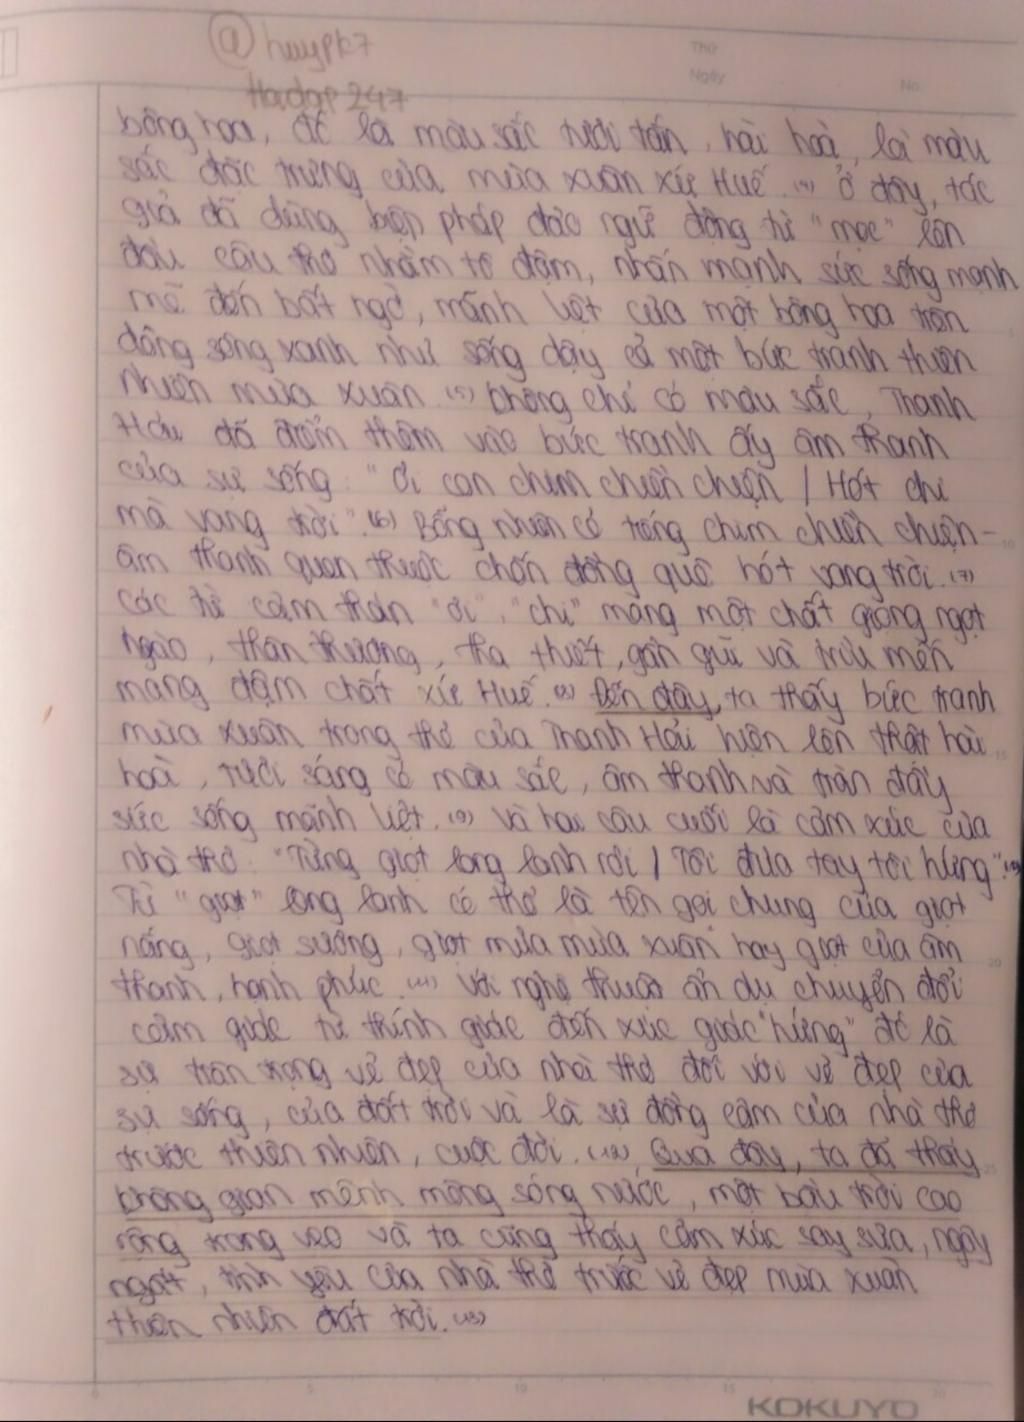 @huypk7
Hadgp247
Thứ
Ngày
No.
bông hoa, đó là màu sắc tươi tắn, hài hoà, là màu
sắc đặc trưng của mùa xuân xứ Huế. (4) Ở đây, tác
giả đã dùng biện pháp đảo ngữ động từ "mọc" lên
đầu câu thơ nhằm tô đậm, nhấn mạnh sức sống mạnh
mẽ đến bất ngờ, mãnh liệt của một bông hoa trên
dòng sông xanh như sống dậy cả một bức tranh thiên
nhiên mùa xuân. (5) Không chỉ có màu sắc, Thanh
Hải đã điểm thêm vào bức tranh ấy âm thanh
của sự sống: "Ơi con chim chiền chiện / Hót chi
mà vang trời". (6) Bỗng nhiên có tiếng chim chiền chiện -
âm thanh quen thuộc chốn đồng quê hót vang trời. (7)
Các từ cảm thán "ơi", "chi" mang một chất giọng ngọt
ngào, thân thương, tha thiết, gần gũi và trìu mến
mang đậm chất xứ Huế. (8) Đến đây, ta thấy bức tranh
mùa xuân trong thơ của Thanh Hải hiện lên thật hài
hoà, tươi sáng có màu sắc, âm thanh và tràn đầy
sức sống mãnh liệt. (9) Và hai câu cuối là cảm xúc của
nhà thơ: "Từng giọt long lanh rơi / Tôi đưa tay tôi hứng". (10)
Từ "giọt" long lanh có thể là tên gọi chung của giọt
nắng, giọt sương, giọt mưa mùa xuân hay giọt của âm
thanh, hạnh phúc. (11) Với nghệ thuật ẩn dụ chuyển đổi
cảm giác từ thính giác đến xúc giác "hứng" đó là
sự trân trọng vẻ đẹp của nhà thơ đối với vẻ đẹp của
sự sống, của đất trời và là sự đồng cảm của nhà thơ
trước thiên nhiên, cuộc đời. (12) Qua đây, ta đã thấy
không gian mênh mông sóng nước, một bầu trời cao
rộng trong veo và ta cũng thấy cảm xúc say sưa, ngây
ngất, tình yêu của nhà thơ trước vẻ đẹp mùa xuân
thiên nhiên đất trời. (13)
KOKUYO